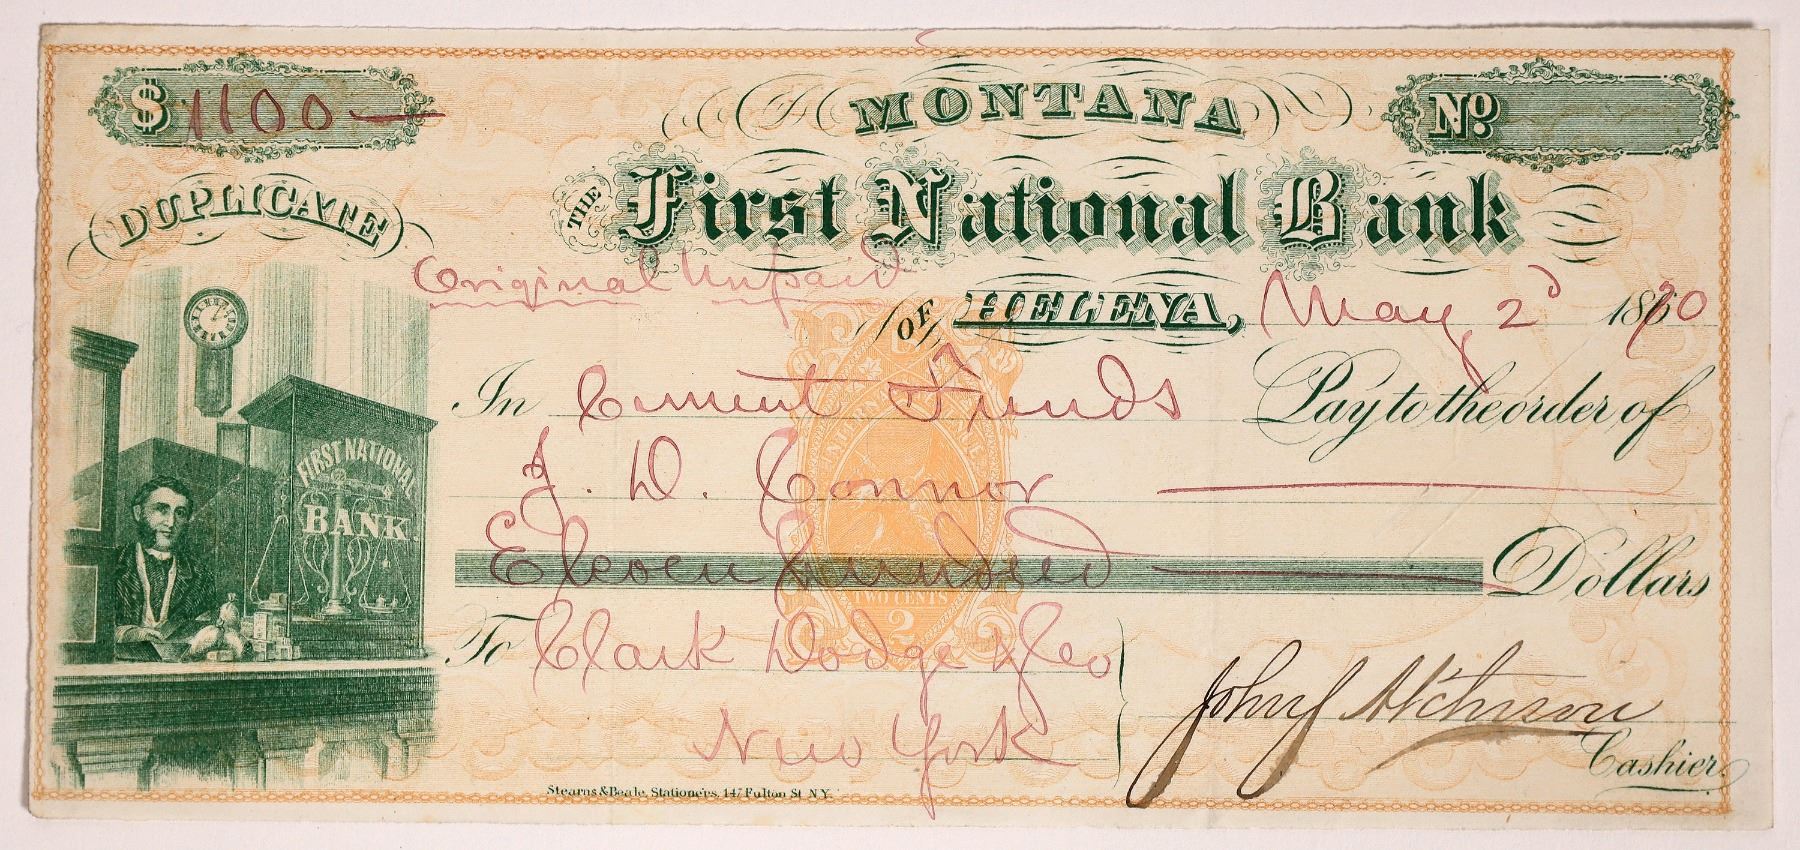 $ 1100 —
MONTANA
No.
DUPLICATE
THE First National Bank
Original Unpaid
OF HELENA, May 2d 1870
In Current Funds Pay to the order of
J. D. Connor
Eleven hundred Dollars
To Clark Dodge & Co
New York
John J Atchison
Cashier.
FIRST NATIONAL
BANK.
INTERNAL REVENUE
TWO CENTS
2
Stearns & Beale, Stationers, 147 Fulton St. N.Y.